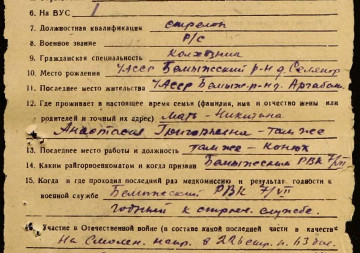 6. На ВУС 1
7. Должностная квалификация стрелок
8. Военное звание Р/С
9. Гражданская специальность Колхозник
10. Место рождения УАССР Бемыжский р-н д.
11. Последнее место жительства УАССР Бемыж. р-н д.
12. Где проживает в настоящее время семья (фамилия, имя и отчество жены или
родителей и точный их адрес) Мать - Никитина
Анастасия Григорьевна - там же
13. Последнее место работы и должность там же - Конюх
14. Каким райгорвоенкоматом и когда призван Бемыжским РВК 7/VII
15. Когда и где проходил последний раз медкомиссию и результат годности к
военной службе Бемыжский РВК 7/VII
годный к строев. службе.
16. Участие в Отечественной войне (в составе какой последней части и в качестве
На Смолен. напр. в